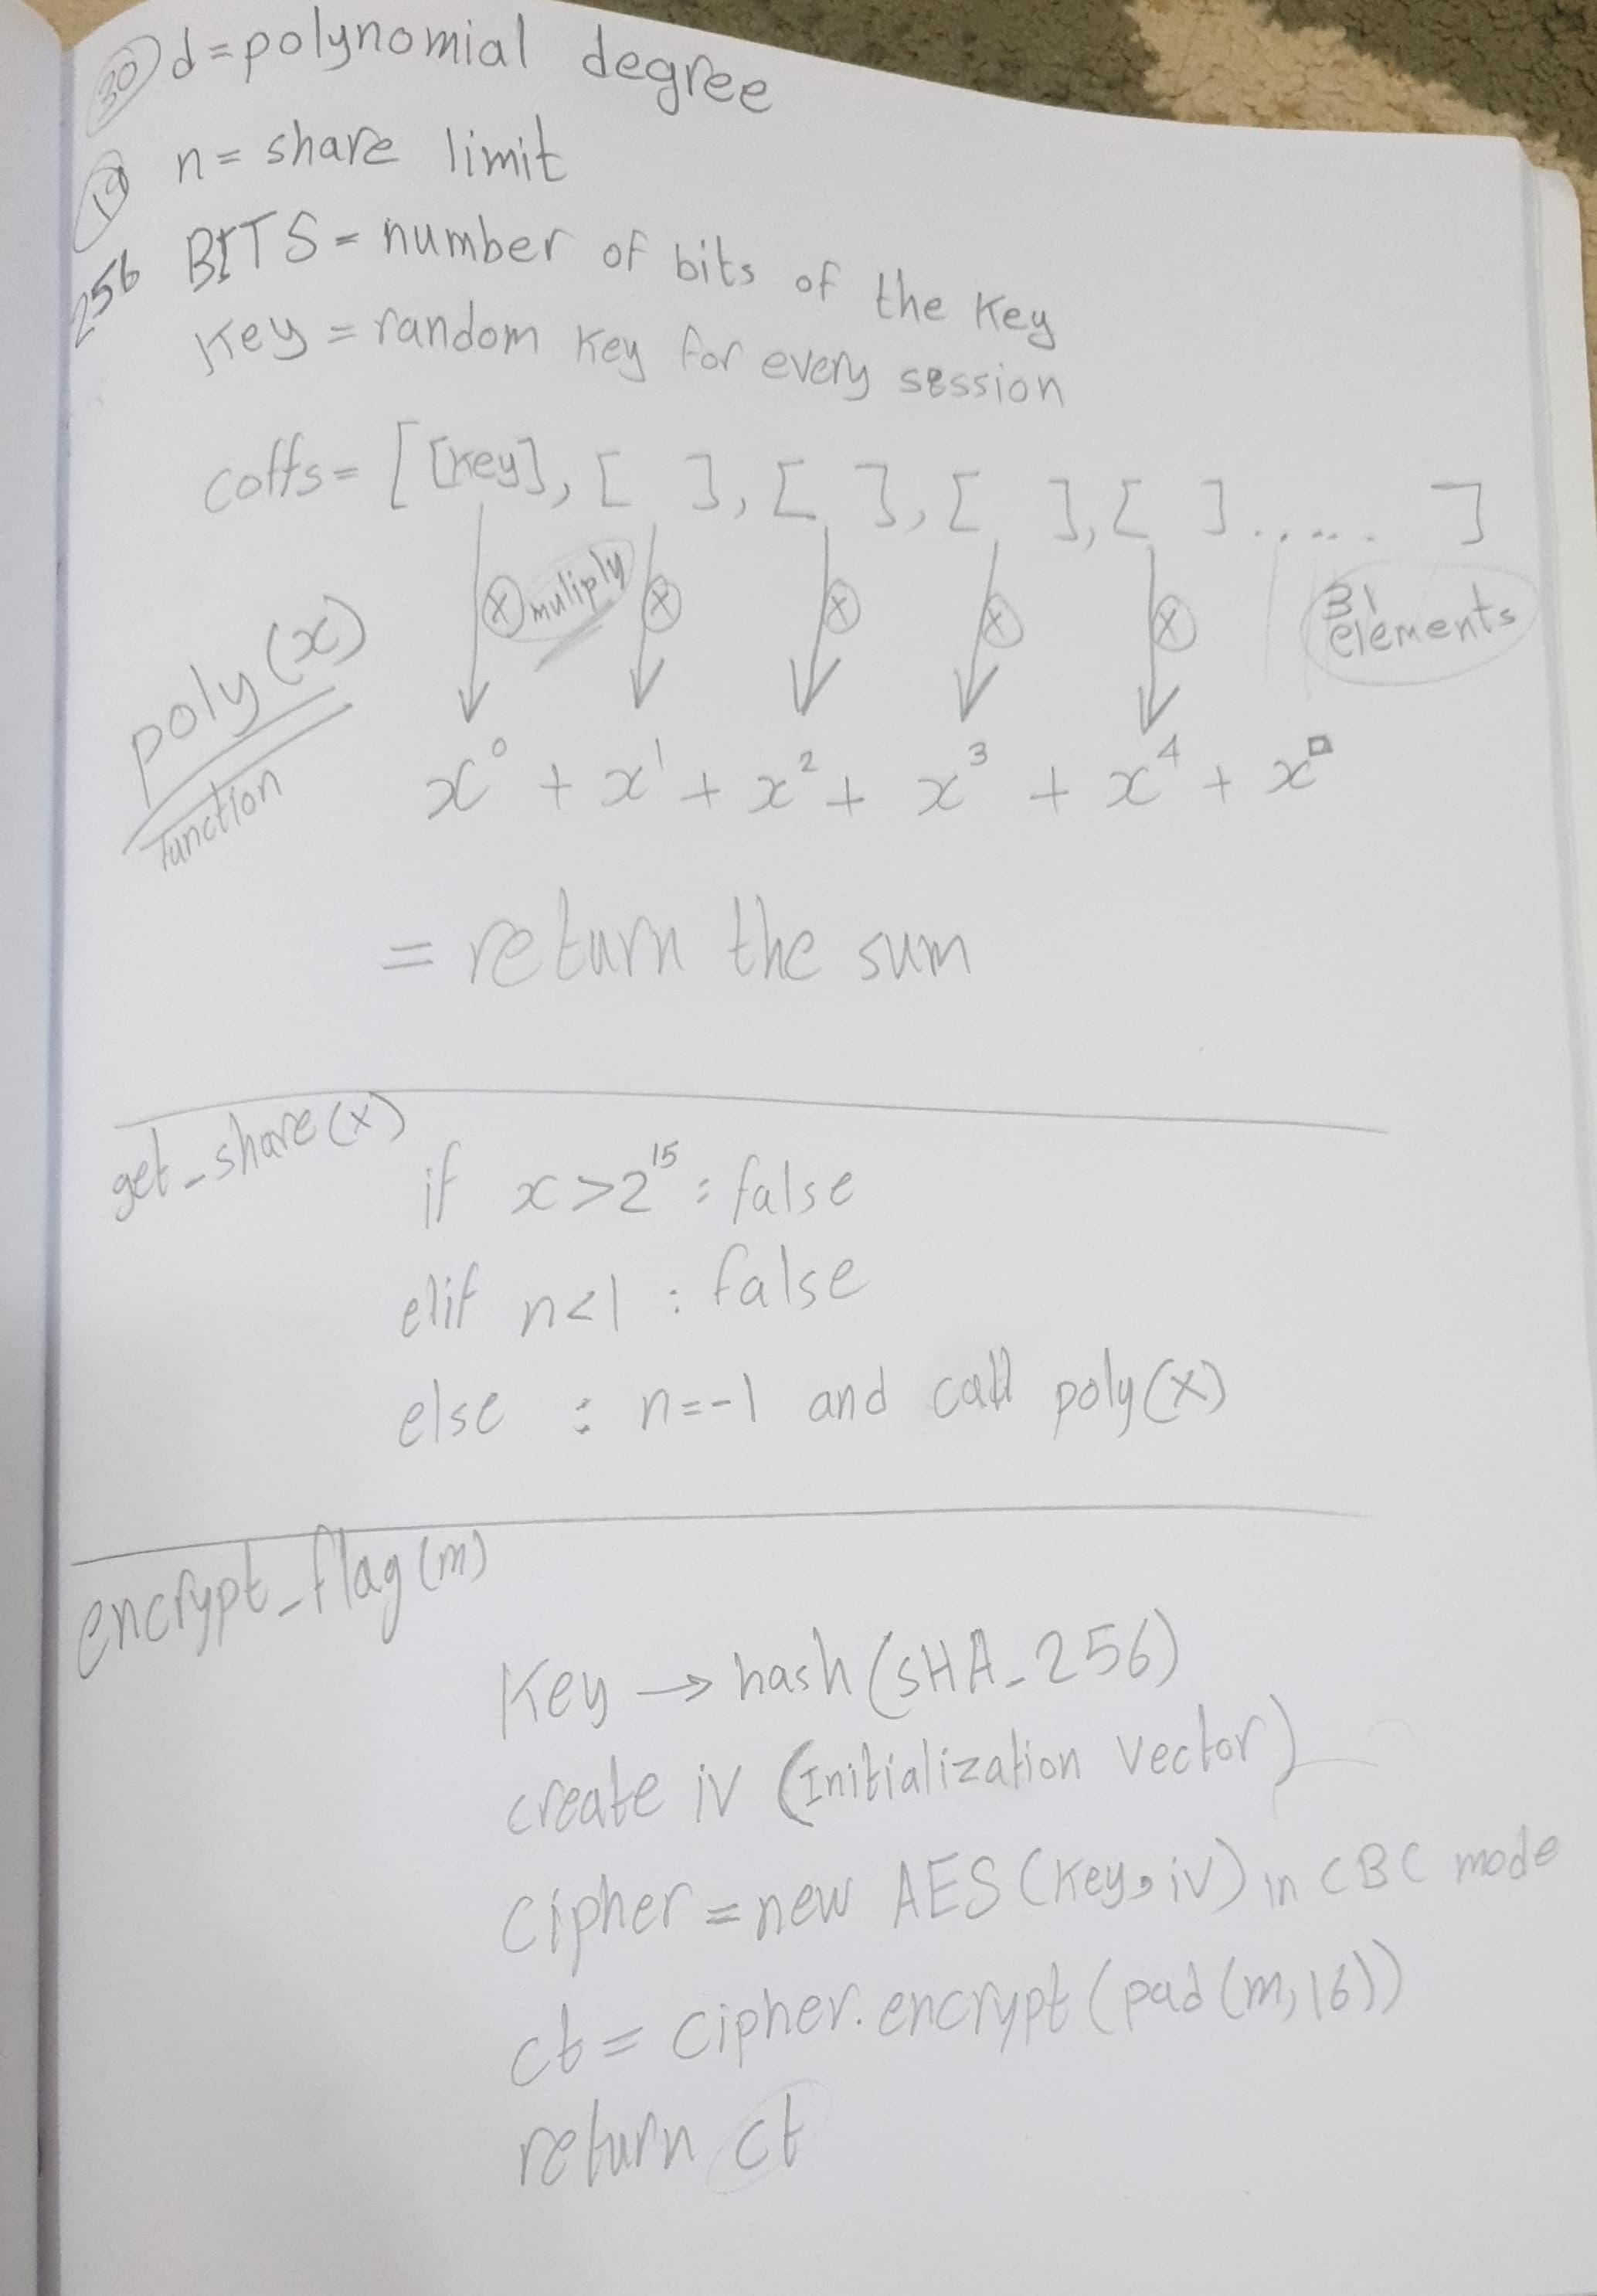 30 d=polynomial degree
19 n= share limit
256 BITS= number of bits of the key
Key = random key for every session
coffs= [ [key], [ ], [ ], [ ], [ ]...... ]
x muliply x x x x 31 elements
poly(x) function
x⁰ + x¹ + x² + x³ + x⁴ + x□
= return the sum
get_share(x)
if x>2¹⁵ : false
elif n<1 : false
else : n=-1 and call poly(x)
encrypt_flag(m)
Key → hash(SHA_256)
create iv (Initialization Vector)
cipher = new AES (key, iv) in CBC mode
ct = cipher.encrypt (pad (m, 16))
return ct